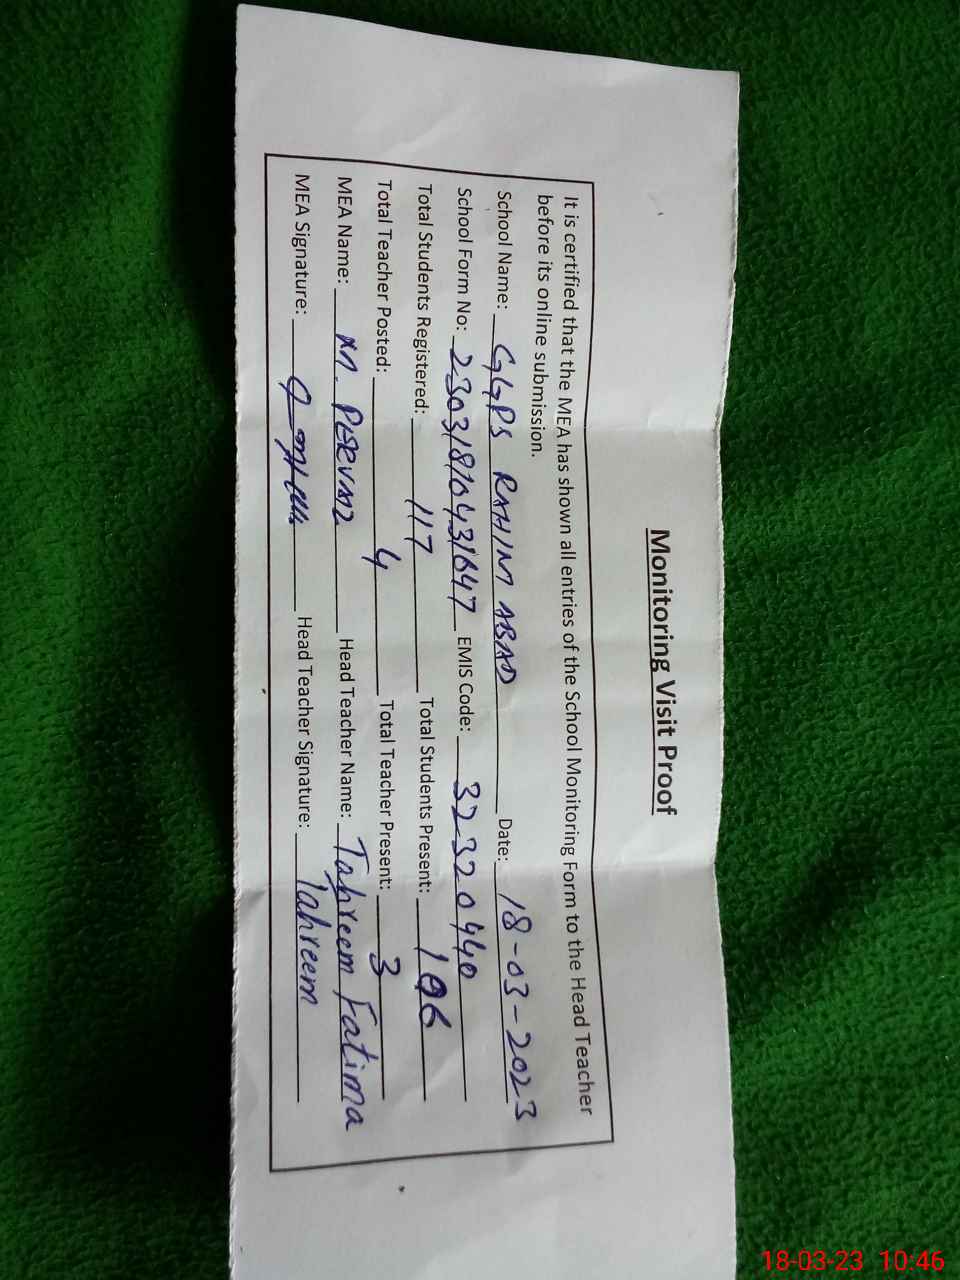 Monitoring Visit Proof
It is certified that the MEA has shown all entries of the School Monitoring Form to the Head Teacher
before its online submission.
School Name: GGPS RAHIM ABAD Date: 18-03-2023
School Form No: 23031810431647 EMIS Code: 32320440
Total Students Registered: 117 Total Students Present: 106
Total Teacher Posted: 4 Total Teacher Present: 3
MEA Name: M. PERVAIZ Head Teacher Name: Tahreem Fatima
MEA Signature: Head Teacher Signature: Tahreem
18-03-23 10:46